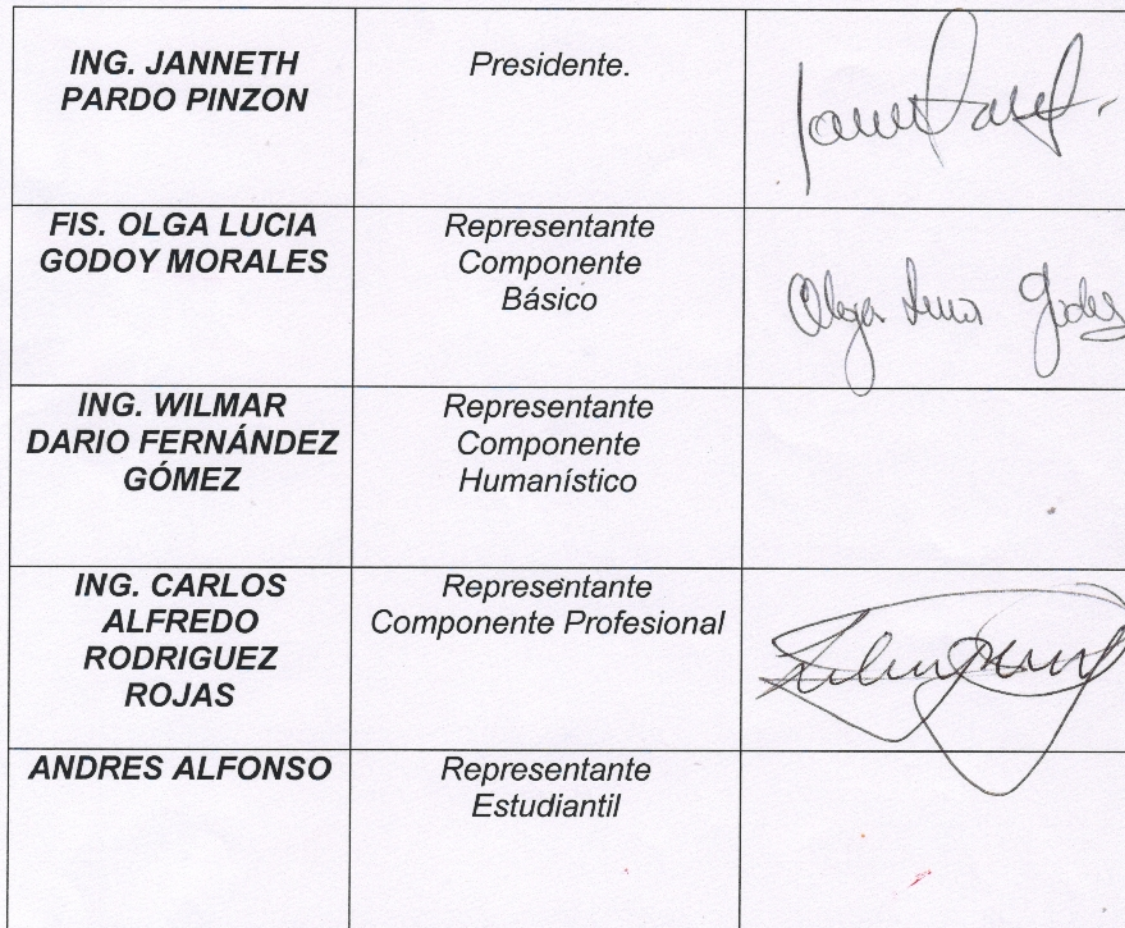 ING. JANNETH
PARDO PINZON
Presidente.
FIS. OLGA LUCIA
GODOY MORALES
Representante
Componente
Básico
Olga Lucia Godoy
ING. WILMAR
DARIO FERNÁNDEZ
GÓMEZ
Representante
Componente
Humanístico
ING. CARLOS
ALFREDO
RODRIGUEZ
ROJAS
Representante
Componente Profesional
ANDRES ALFONSO
Representante
Estudiantil